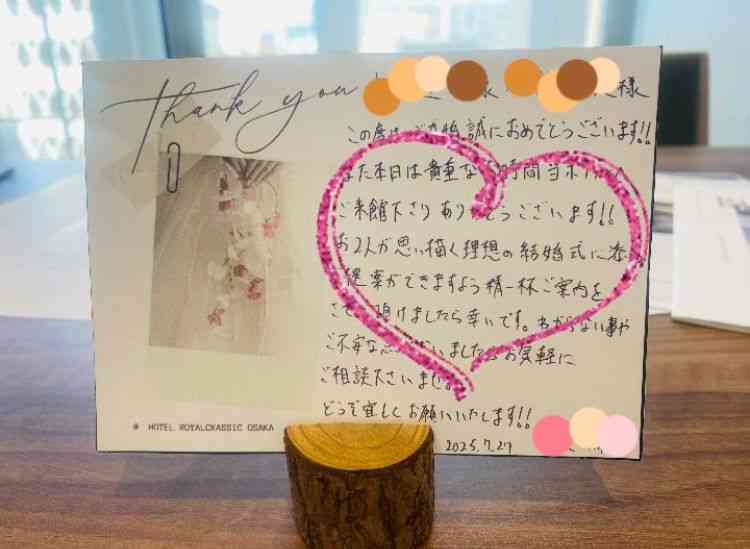 Thank you
様
この度は ご結婚 誠におめでとうございます!!
また本日は貴重な時間当ホテルへ
ご来館下さりありがとうございます!!
お2人が思い描く理想の結婚式に
提案ができますよう精一杯ご案内を
させて頂けましたら幸いです。わからない事や
ご不安な いましたらお気軽に
ご相談下さいませ
どうぞ宜しくお願いいたします!!
2025.7.27
HOTEL ROYALCKASSIC OSAKA